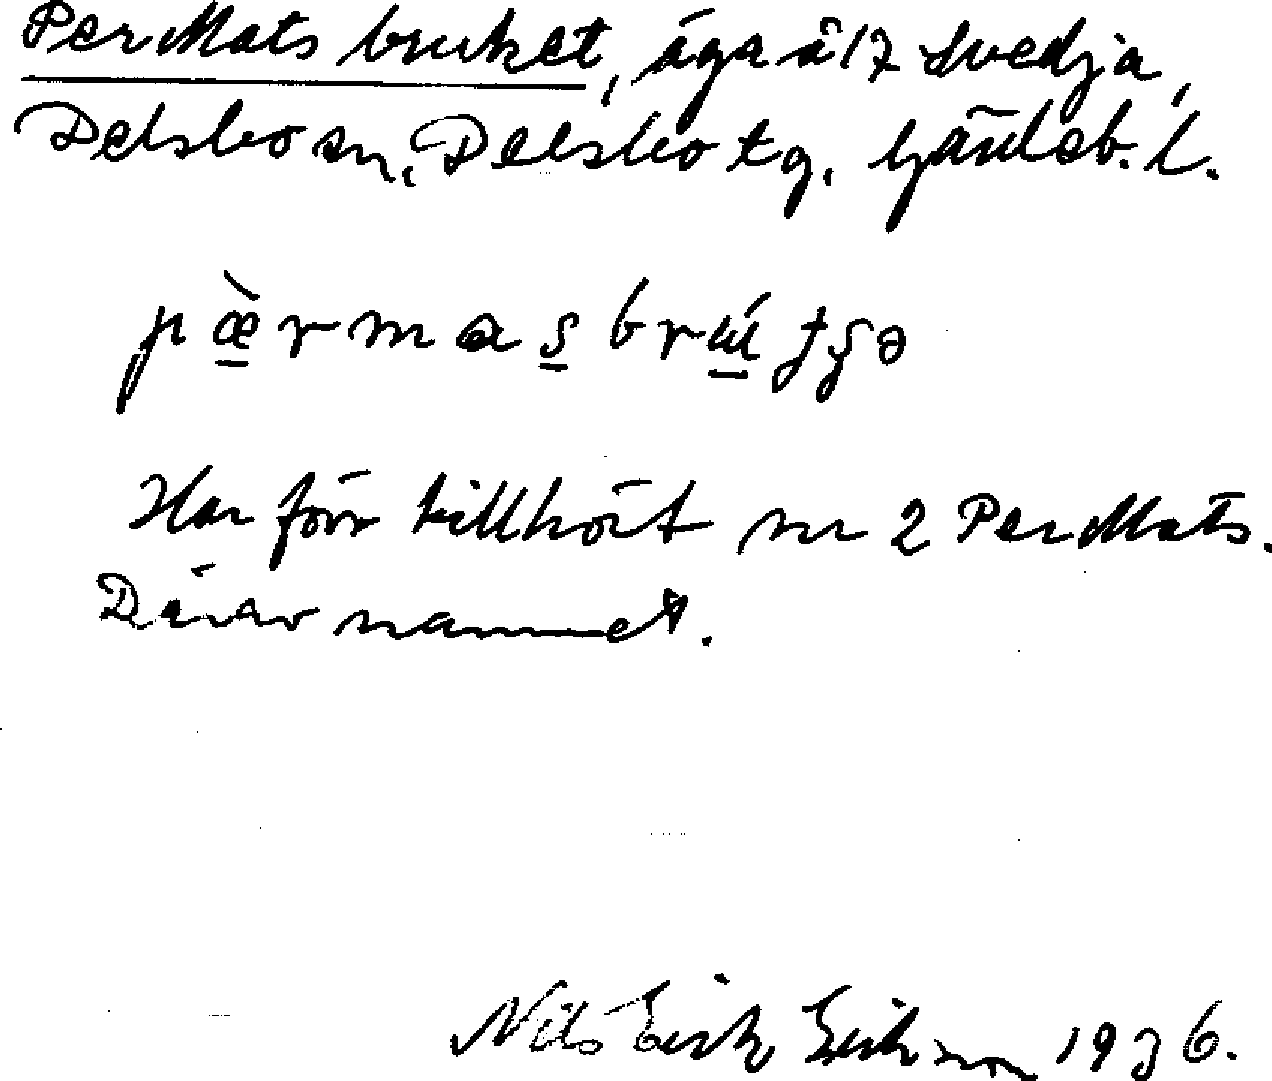 Per Mats bruket, äga å 17 Svedja,
Delsbo sn, Delsbo tg, Gävleb. l.
Har förr tillhört nr 2 Per Mats.
Därav namnet.
Nils Erik Erikson 1936.